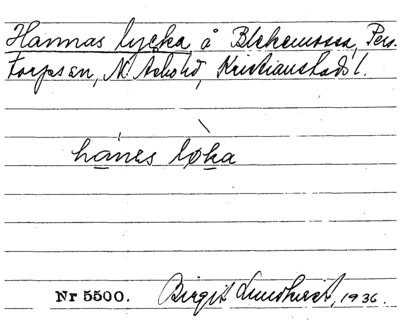 Hannas lycka å Blekemossa, Pers-
torps sn, N. Åsbo hd, Kristianstads l.
hánes lø̀ka
Nr 5500. Birgit Lundqvist, 1936.